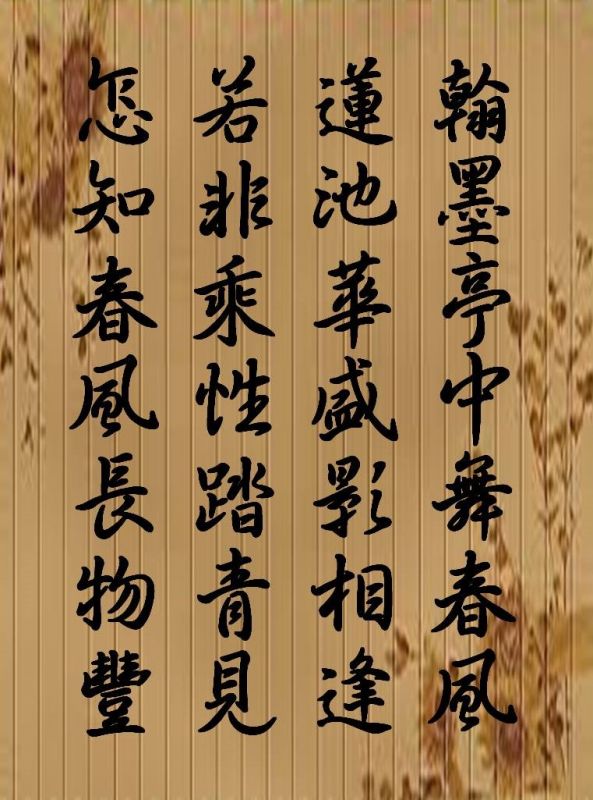 翰墨亭中舞春風
蓮池華盛影相逢
若非乘性踏青見
怎知春風長物豐